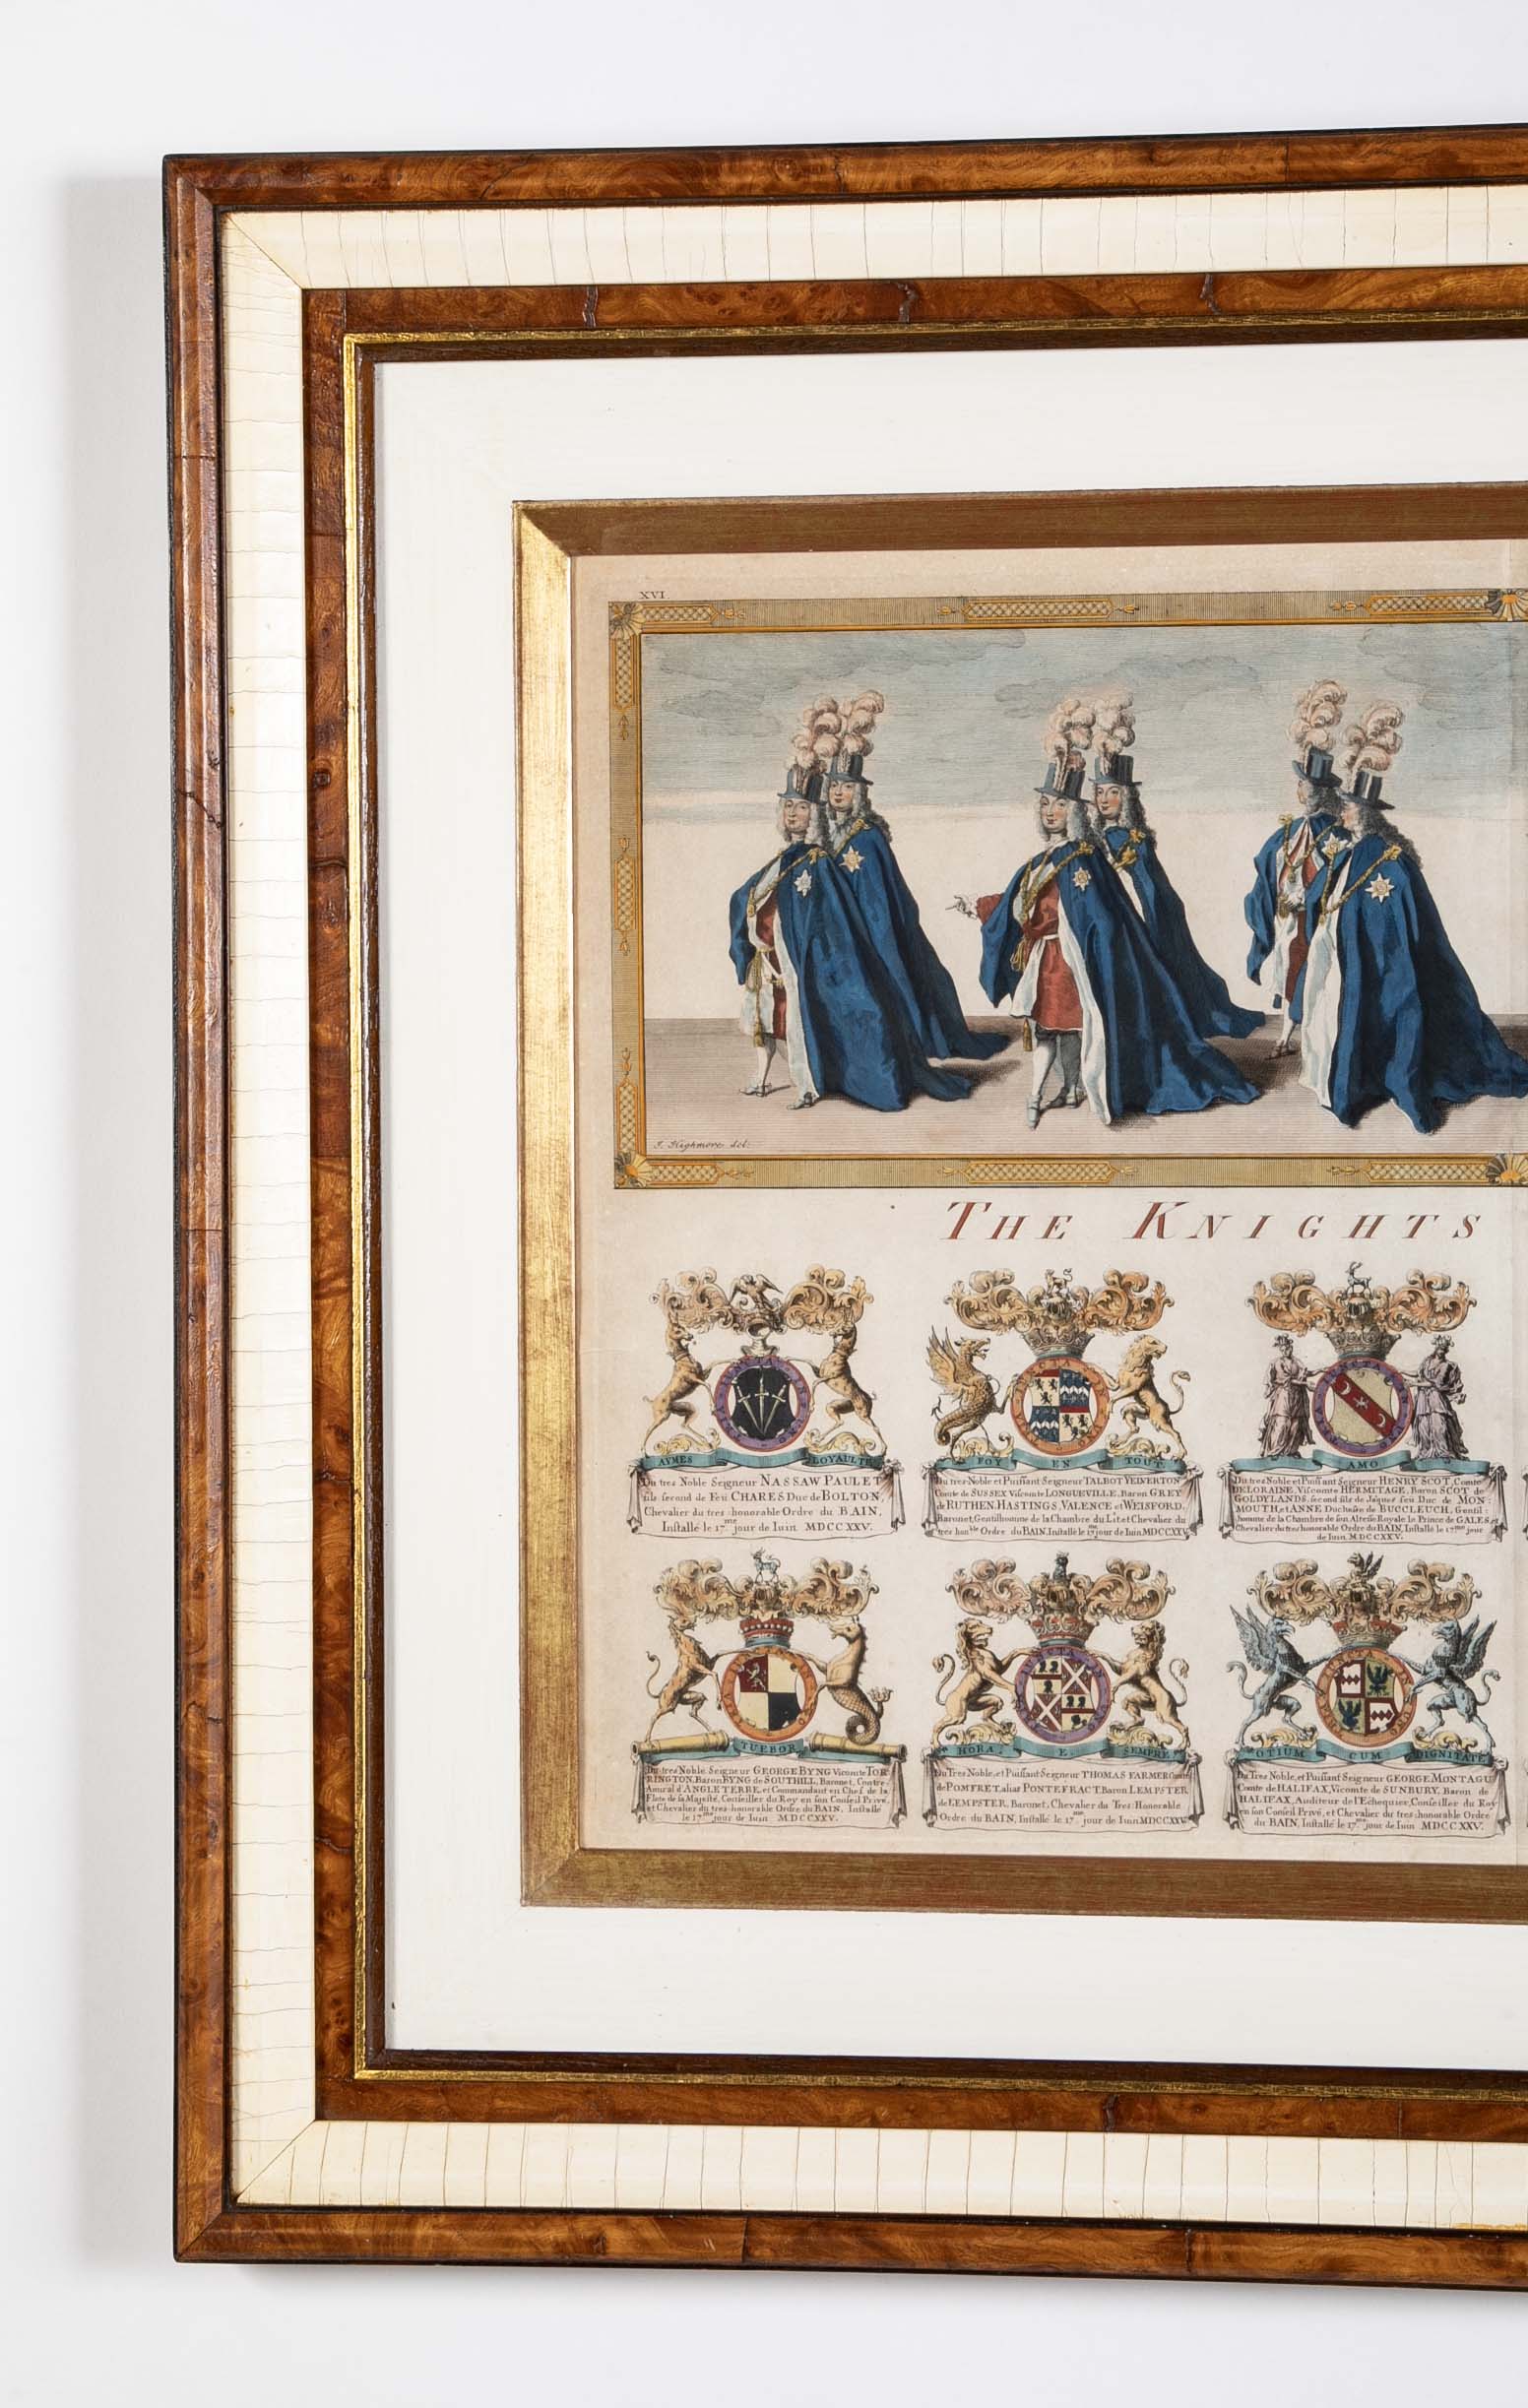 XVI
J. Highmore del:
THE KNIGHTS
AYMES LOYAULTE
Du tres Noble Seigneur NASSAW PAULET
fils second de Feu CHARES Duc de BOLTON,
Chevalier du tres-honorable Ordre du BAIN,
Installé le 17me jour de Iuin MDCCXXV.
FOY EN TOUT
Du tres-Noble et Puissant Seigneur TALBOT YELVERTON
Comte de SUSSEX Viscomte LONGUEVILLE, Baron GREY
de RUTHEN, HASTINGS, VALENCE et WEISFORD,
Baronet, Gentilhomme de la Chambre du Lit et Chevalier du
tres honble Ordre du BAIN, Installé le 17 jour de Iuin MDCCXXV
AMO
Du tres Noble et Puissant Seigneur HENRY SCOT, Comte
DELORAINE, Viscomte HERMITAGE, Baron SCOT de
GOLDYLANDS, second fils de Jaques feu Duc de MON-
MOUTH, et ANNE Duchesse de BUCCLEUCH, Gentil-
homme de la Chambre de son Altesse Royale le Prince de GALES, et
Chevalier du tres honorable Ordre du BAIN, Installé le 17me jour
de Iuin MDCCXXV.
TUEBOR
Du tres Noble Seigneur GEORGE BYNG Vicomte TOR
RINGTON, Baron BYNG de SOUTHILL, Baronet, Contre-
Amiral d'ANGLETERRE, et Commandant en Chef de la
Flote de sa Majesté, Conseiller du Roy en son Conseil Privé,
et Chevalier du tres-honorable Ordre du BAIN, Installé
le 17me jour de Iuin MDCCXXV.
HORA E SEMPRE
Du Tres Noble, et Puissant Seigneur THOMAS FARMER Comte
de POMFRET, alias PONTEFRACT, Baron LEMPSTER
de LEMPSTER, Baronet, Chevalier du Tres-Honorable
Ordre du BAIN, Installé le 17me jour de Iuin MDCCXXV
OTIUM CUM DIGNITATE
Du Tres Noble, et Puissant Seigneur GEORGE MONTAGU
Comte de HALIFAX, Vicomte de SUNBURY, Baron de
HALIFAX, Auditeur de l'Echequier, Conseiller du Roy
en son Conseil Privé, et Chevalier du tres-honorable Ordre
du BAIN, Installé le 17me jour de Iuin MDCCXXV.